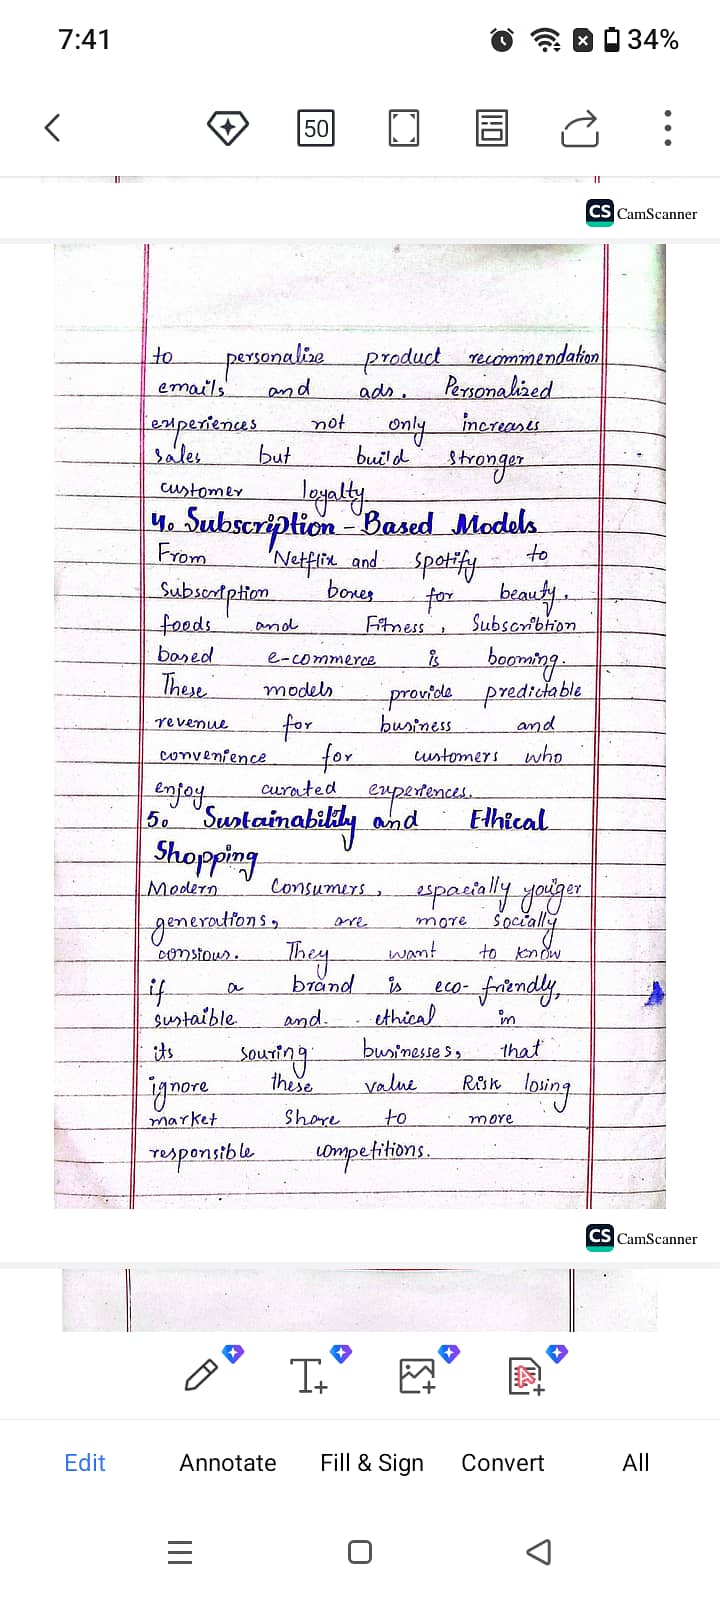 7:41
34%
50
CS CamScanner
to personalize product recommendation
emails and ads. Personalized
experiences not only increases
sales but build stronger
customer loyalty.
4. Subscription-Based Models
From Netflix and spotify to
Subscription boxes for beauty,
foods and Fitness, Subscribtion
based e-commerce is booming.
These models provide predictable
revenue for business and
convenience for customers who
enjoy curated experiences.
5. Sustainability and Ethical
Shopping
Modern Consumers, espacially youger
generations, are more socially
consious. They want to know
if a brand is eco-friendly,
sustaible and ethical in
its souring businesses, that
ignore these value Risk losing
market Share to more
responsible competitions.
CS CamScanner
Edit Annotate Fill & Sign Convert All